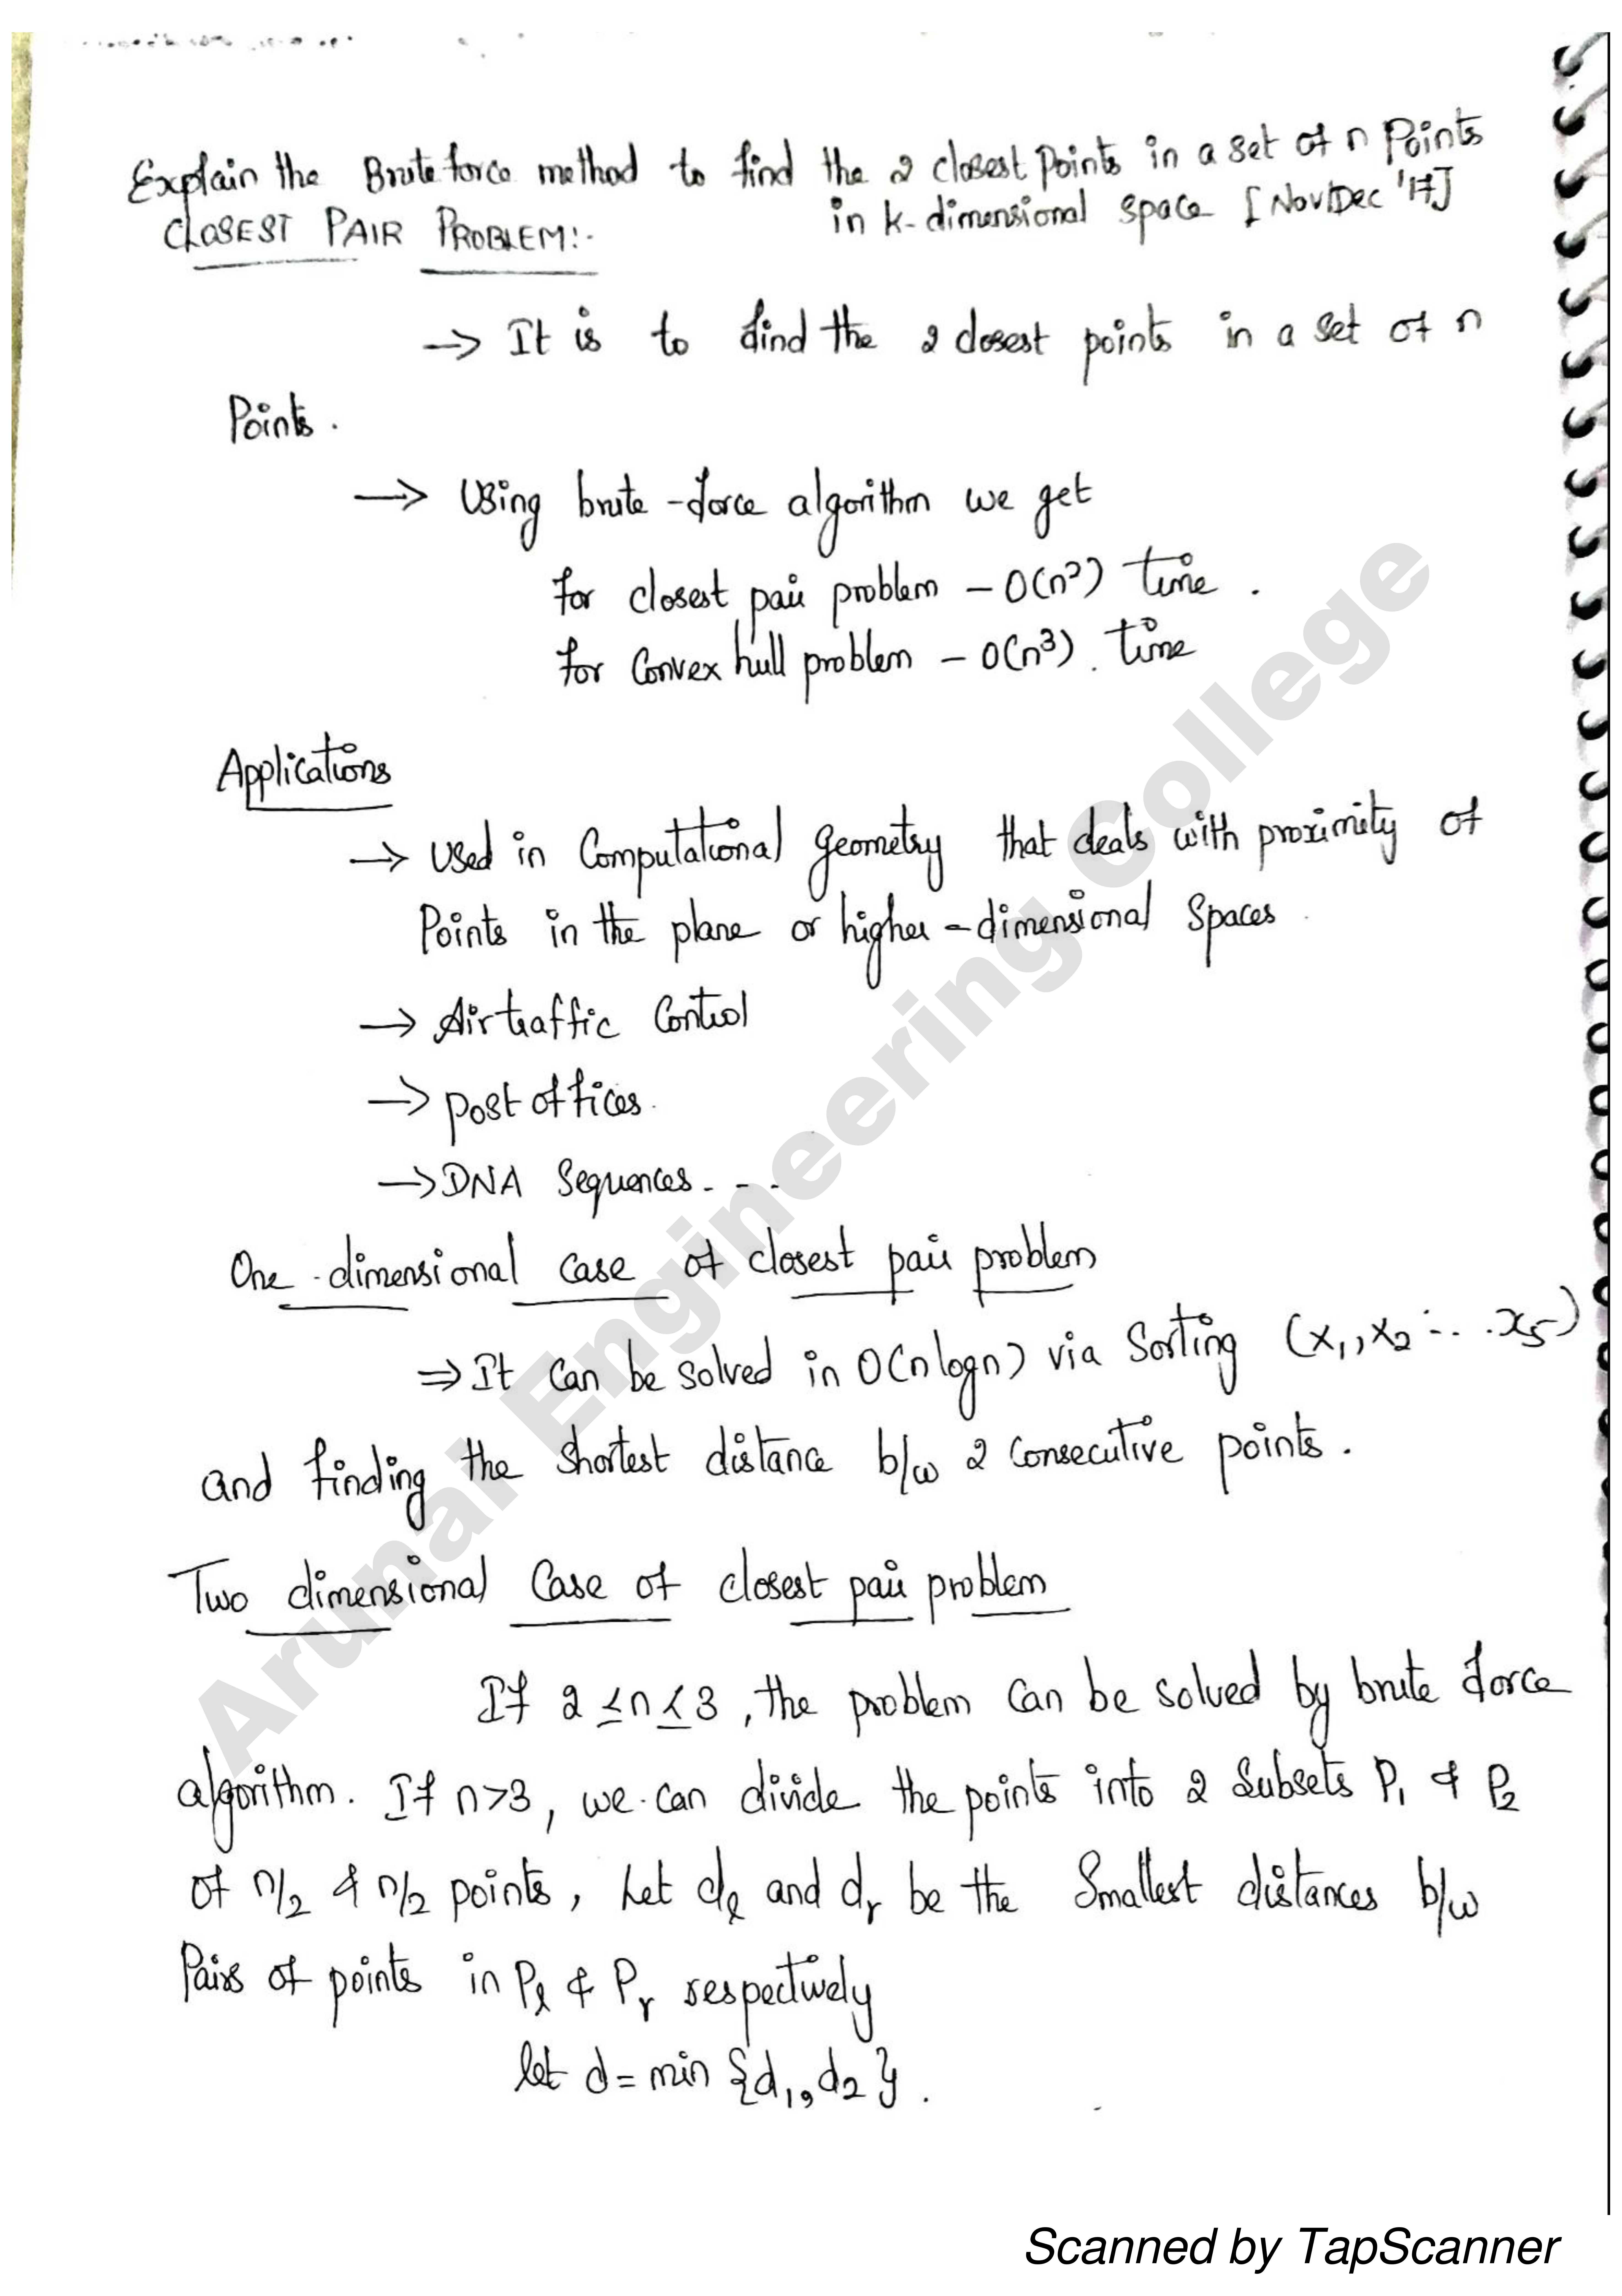 Explain the Brute force method to find the 2 closest Points in a set of n Points
in k-dimensional space [Nov/Dec '17]
CLOSEST PAIR PROBLEM:-
→ It is to find the 2 closest points in a set of n
Points.
→ Using brute-force algorithm we get
for closest pair problem - O(n²) time.
for Convex hull problem - O(n³). time
Applications
→ Used in Computational geometry that deals with proximity of
Points in the plane or higher-dimensional Spaces.
→ Airtraffic Control
→ post offices.
→ DNA Sequences. - -
One-dimensional case of closest pair problem
⇒ It can be solved in O(n logn) via Sorting (x₁, x₂ ... x₅)
and finding the shortest distance b/w 2 consecutive points.
Two dimensional Case of closest pair problem
If 2 ≤ n ≤ 3, the problem can be solved by brute force
algorithm. If n>3, we can divide the points into 2 subsets P₁ & P₂
of n/2 & n/2 points, Let dₗ and dᵣ be the smallest distances b/w
Pairs of points in Pₗ & Pᵣ respectively
let d = min {d₁, d₂}.
Arunai Engineering College
Scanned by TapScanner